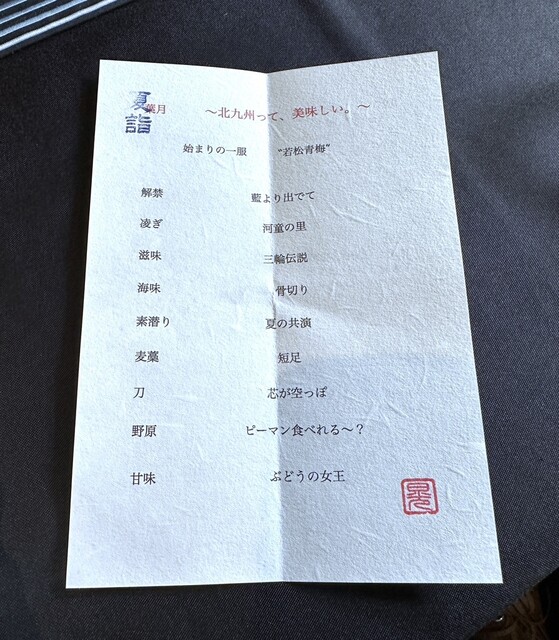 夏詣
葉月 〜北九州って、美味しい。〜
始まりの一服 "若松青梅"
解禁 藍より出でて
凌ぎ 河童の里
滋味 三輪伝説
海味 骨切り
素潜り 夏の共演
麦藁 短足
刀 芯が空っぽ
野原 ピーマン食べれる〜？
甘味 ぶどうの女王